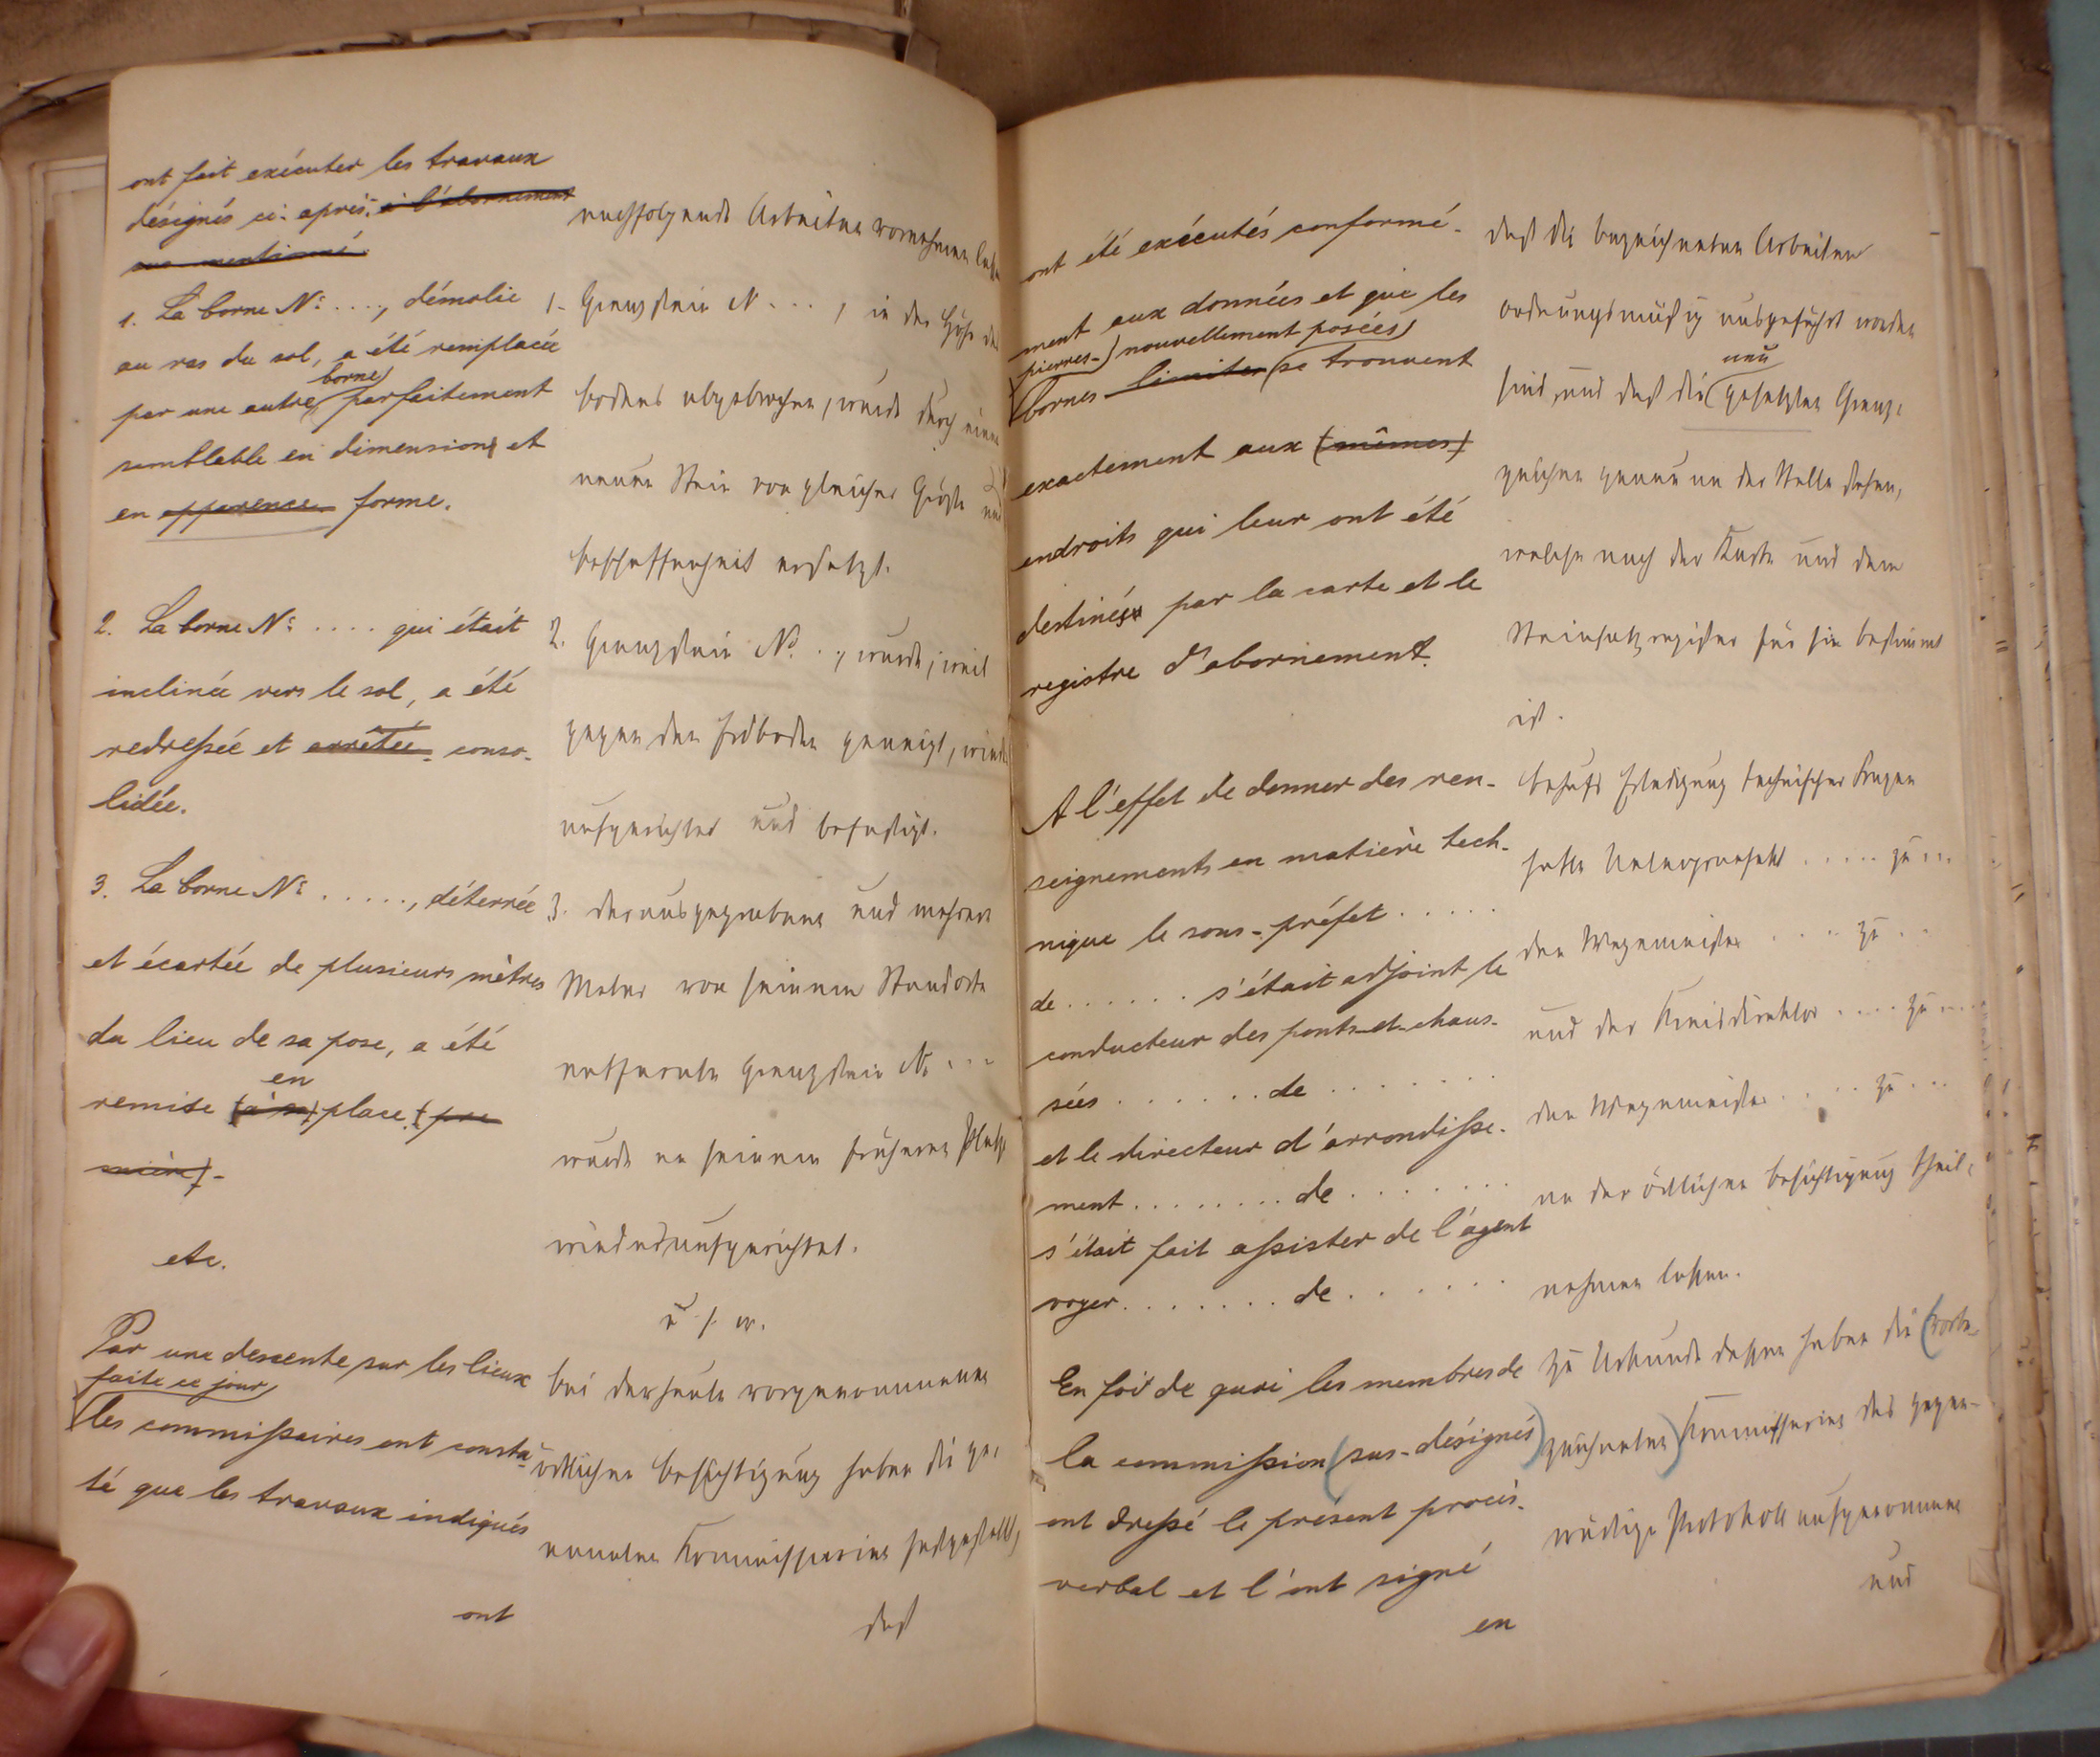 ont fait exécuter les travaux
désignés ci-après: à l'abornement
sus-mentionné.
1. La borne No ...., démolie
au ras du sol, a été remplacée
borne
par une autre parfaitement
semblable en dimensions et
en apparence forme.
2. La borne No .... qui était
inclinée vers le sol, a été
redressée et arrêtée conso-
lidée.
3. La borne No ....., déterrée
et écartée de plusieurs mètres
du lieu de sa pose, a été
en
remise (à sa) place. (pre
mière).-
etc.
Par une descente sur les lieux
faite ce jour
les commissaires ont consta-
té que les travaux indiqués
ont
nachfolgende Arbeiten vornehmen
1. Grenzstein N ..., in der Höhe des
Bodens abgebrochen, wurde durch einen
neuen Stein von gleicher Größe und
Beschaffenheit ersetzt.
2. Grenzstein No. .., wurde, weil
gegen den Erdboden geneigt, wieder
aufgerichtet und befestigt.
3. Der ausgegrabene und mehrere
Meter von seinem Standorte
entfernte Grenzstein No ...
wurde an seinem früheren Platze
wiederaufgerichtet.
u. s. w.
Bei der heute vorgenommenen
örtlichen Besichtigung haben die ge-
nannten Kommissarien festgestellt,
daß
ont été exécutés conformé-
ment aux données et que les
pierres-) nouvellement posées)
bornes limites se trouvent
exactement aux (mêmes)
endroits qui leur ont été
destinés par la carte et le
registre d'abornement.
A l'effet de donner des ren-
seignements en matière tech-
nique le sous-préfet .....
de ...... s'était adjoint le
conducteur des ponts-et-chaus-
sées ....... de ........
et le directeur d'arrondisse-
ment ........ de .......
s'était fait assister de l'agent
voyer ........ de .......
En foi de quoi les membres de
la commission (sus-désignés)
ont dressé le présent procès-
verbal et l'ont signé
en
daß die bezeichneten Arbeiten
ordnungsmäßig ausgeführt worden
neu
sind, und daß die gesetzten Grenz-
zeichen genau an der Stelle stehen,
welche nach der Karte und dem
Steinsatzregister für sie bestimmt
ist.
Behufs Erledigung technischer Fragen
hatte Unterpräfekt ..... zu ...
den Wegemeister .... zu ..
und der Kreisdirektor .... zu ....
den Wegemeister ..... zu ...
an der örtlichen Besichtigung theil-
nehmen lassen.
Zu Urkunde dessen haben die (vorbe-
zeichneten) Kommissarien das gegen-
wärtige Protokoll aufgenommen
und